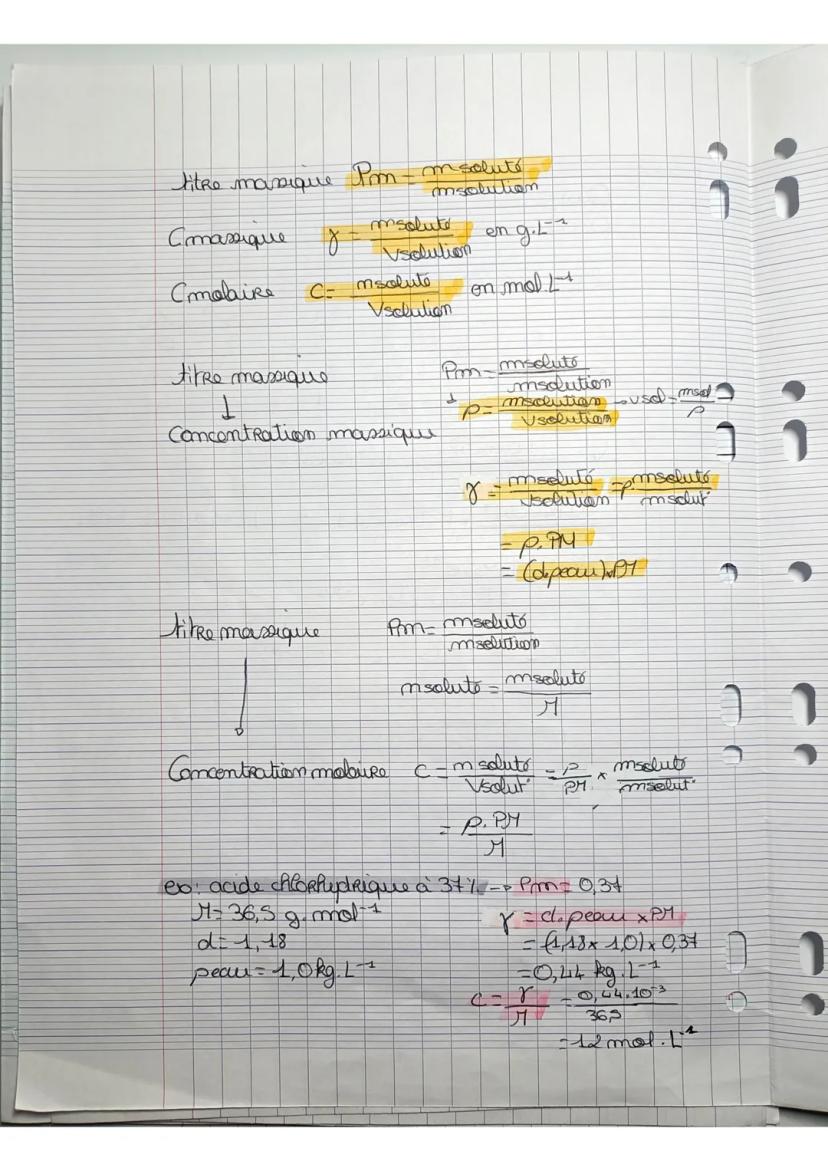 titre massique Pm = msoluté / msolution
Cmassique γ = msoluté / Vsolution en g.L⁻¹
Cmolaire C = nsoluté / Vsolution en mol.L⁻¹
titre massique Pm = msoluté / msolution
↓ ↓ ρ = msolution / Vsolution → Vsol = msol / ρ
Concentration massique
γ = msoluté / Vsolution = ρ. msoluté / msolut°
= ρ.PM
= (d.ρeau)×PM
titre massique Pm = msoluté / msolution
↓ nsoluté = msoluté / M
Concentration molaire C = nsoluté / Vsolut° = ρ / PM × msoluté / msolut°
= ρ.PM / M
ex: acide chlorhydrique à 37% → Pm = 0,37
M = 36,5 g.mol⁻¹ γ = d.ρeau × PM
d = 1,18 = (1,18 × 1,0) × 0,37
ρeau = 1,0 kg.L⁻¹ = 0,44 kg.L⁻¹
C = γ / M = 0,44.10⁻³ / 36,5
= 12 mol.L⁻¹